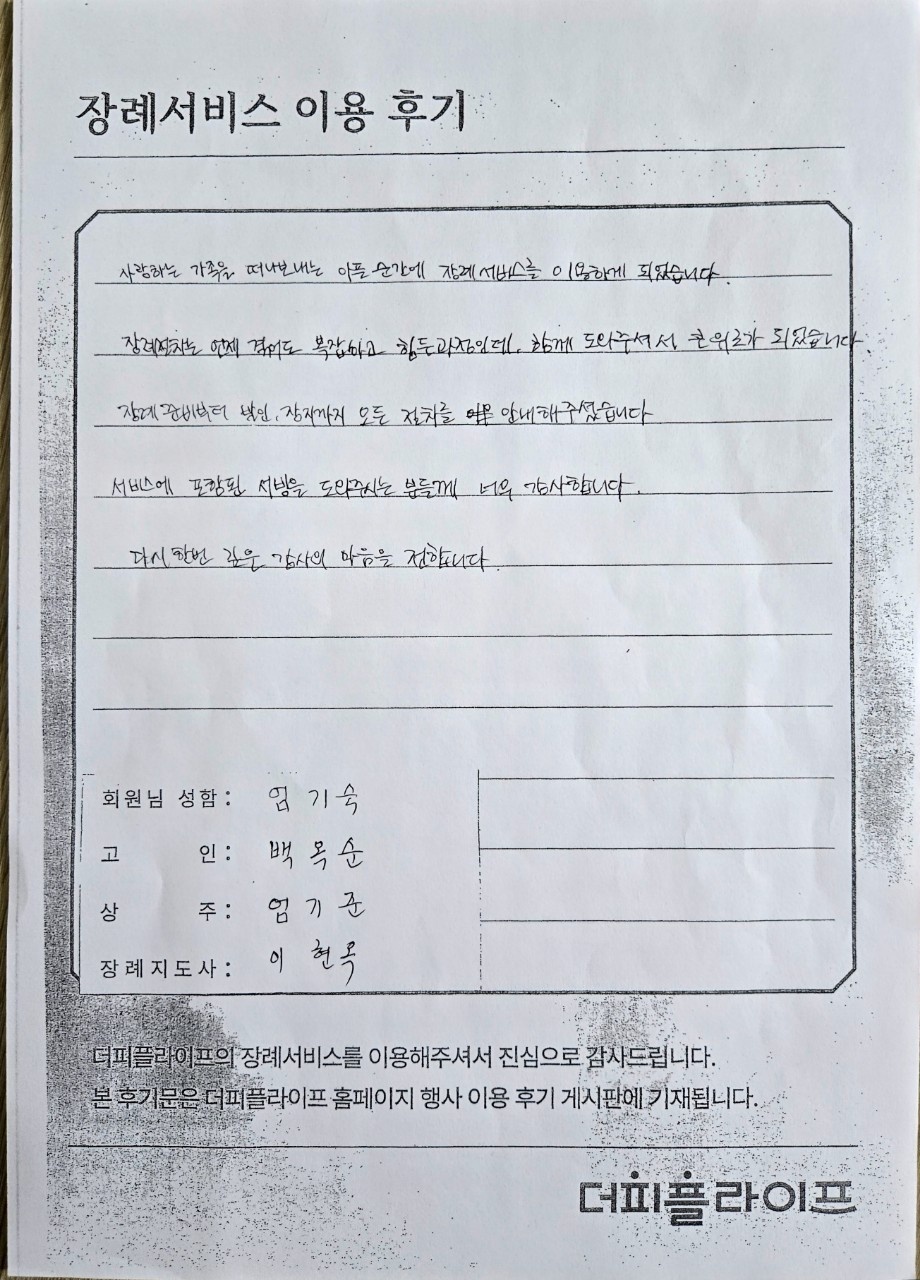 장례서비스 이용 후기
사랑하는 가족을 떠나보내는 아픈 순간에 장례서비스를 이용하게 되었습니다.
장례절차는 언제 겪어도 복잡하고 힘든과정인데, 함께 도와주셔서 큰위로가 되었습니다
장례준비부터 발인, 장지까지 모든 절차를 안내해주셨습니다
서비스에 포함된 서빙을 도와주시는 분들께 너무 감사합니다.
다시한번 깊은 감사의 마음을 전합니다.
회원님 성함: 엄기숙
고 인: 백옥순
상 주: 엄기준
장례지도사: 이현옥
더피플라이프의 장례서비스를 이용해주셔서 진심으로 감사드립니다.
본 후기문은 더피플라이프 홈페이지 행사 이용 후기 게시판에 기재됩니다.
더피플라이프